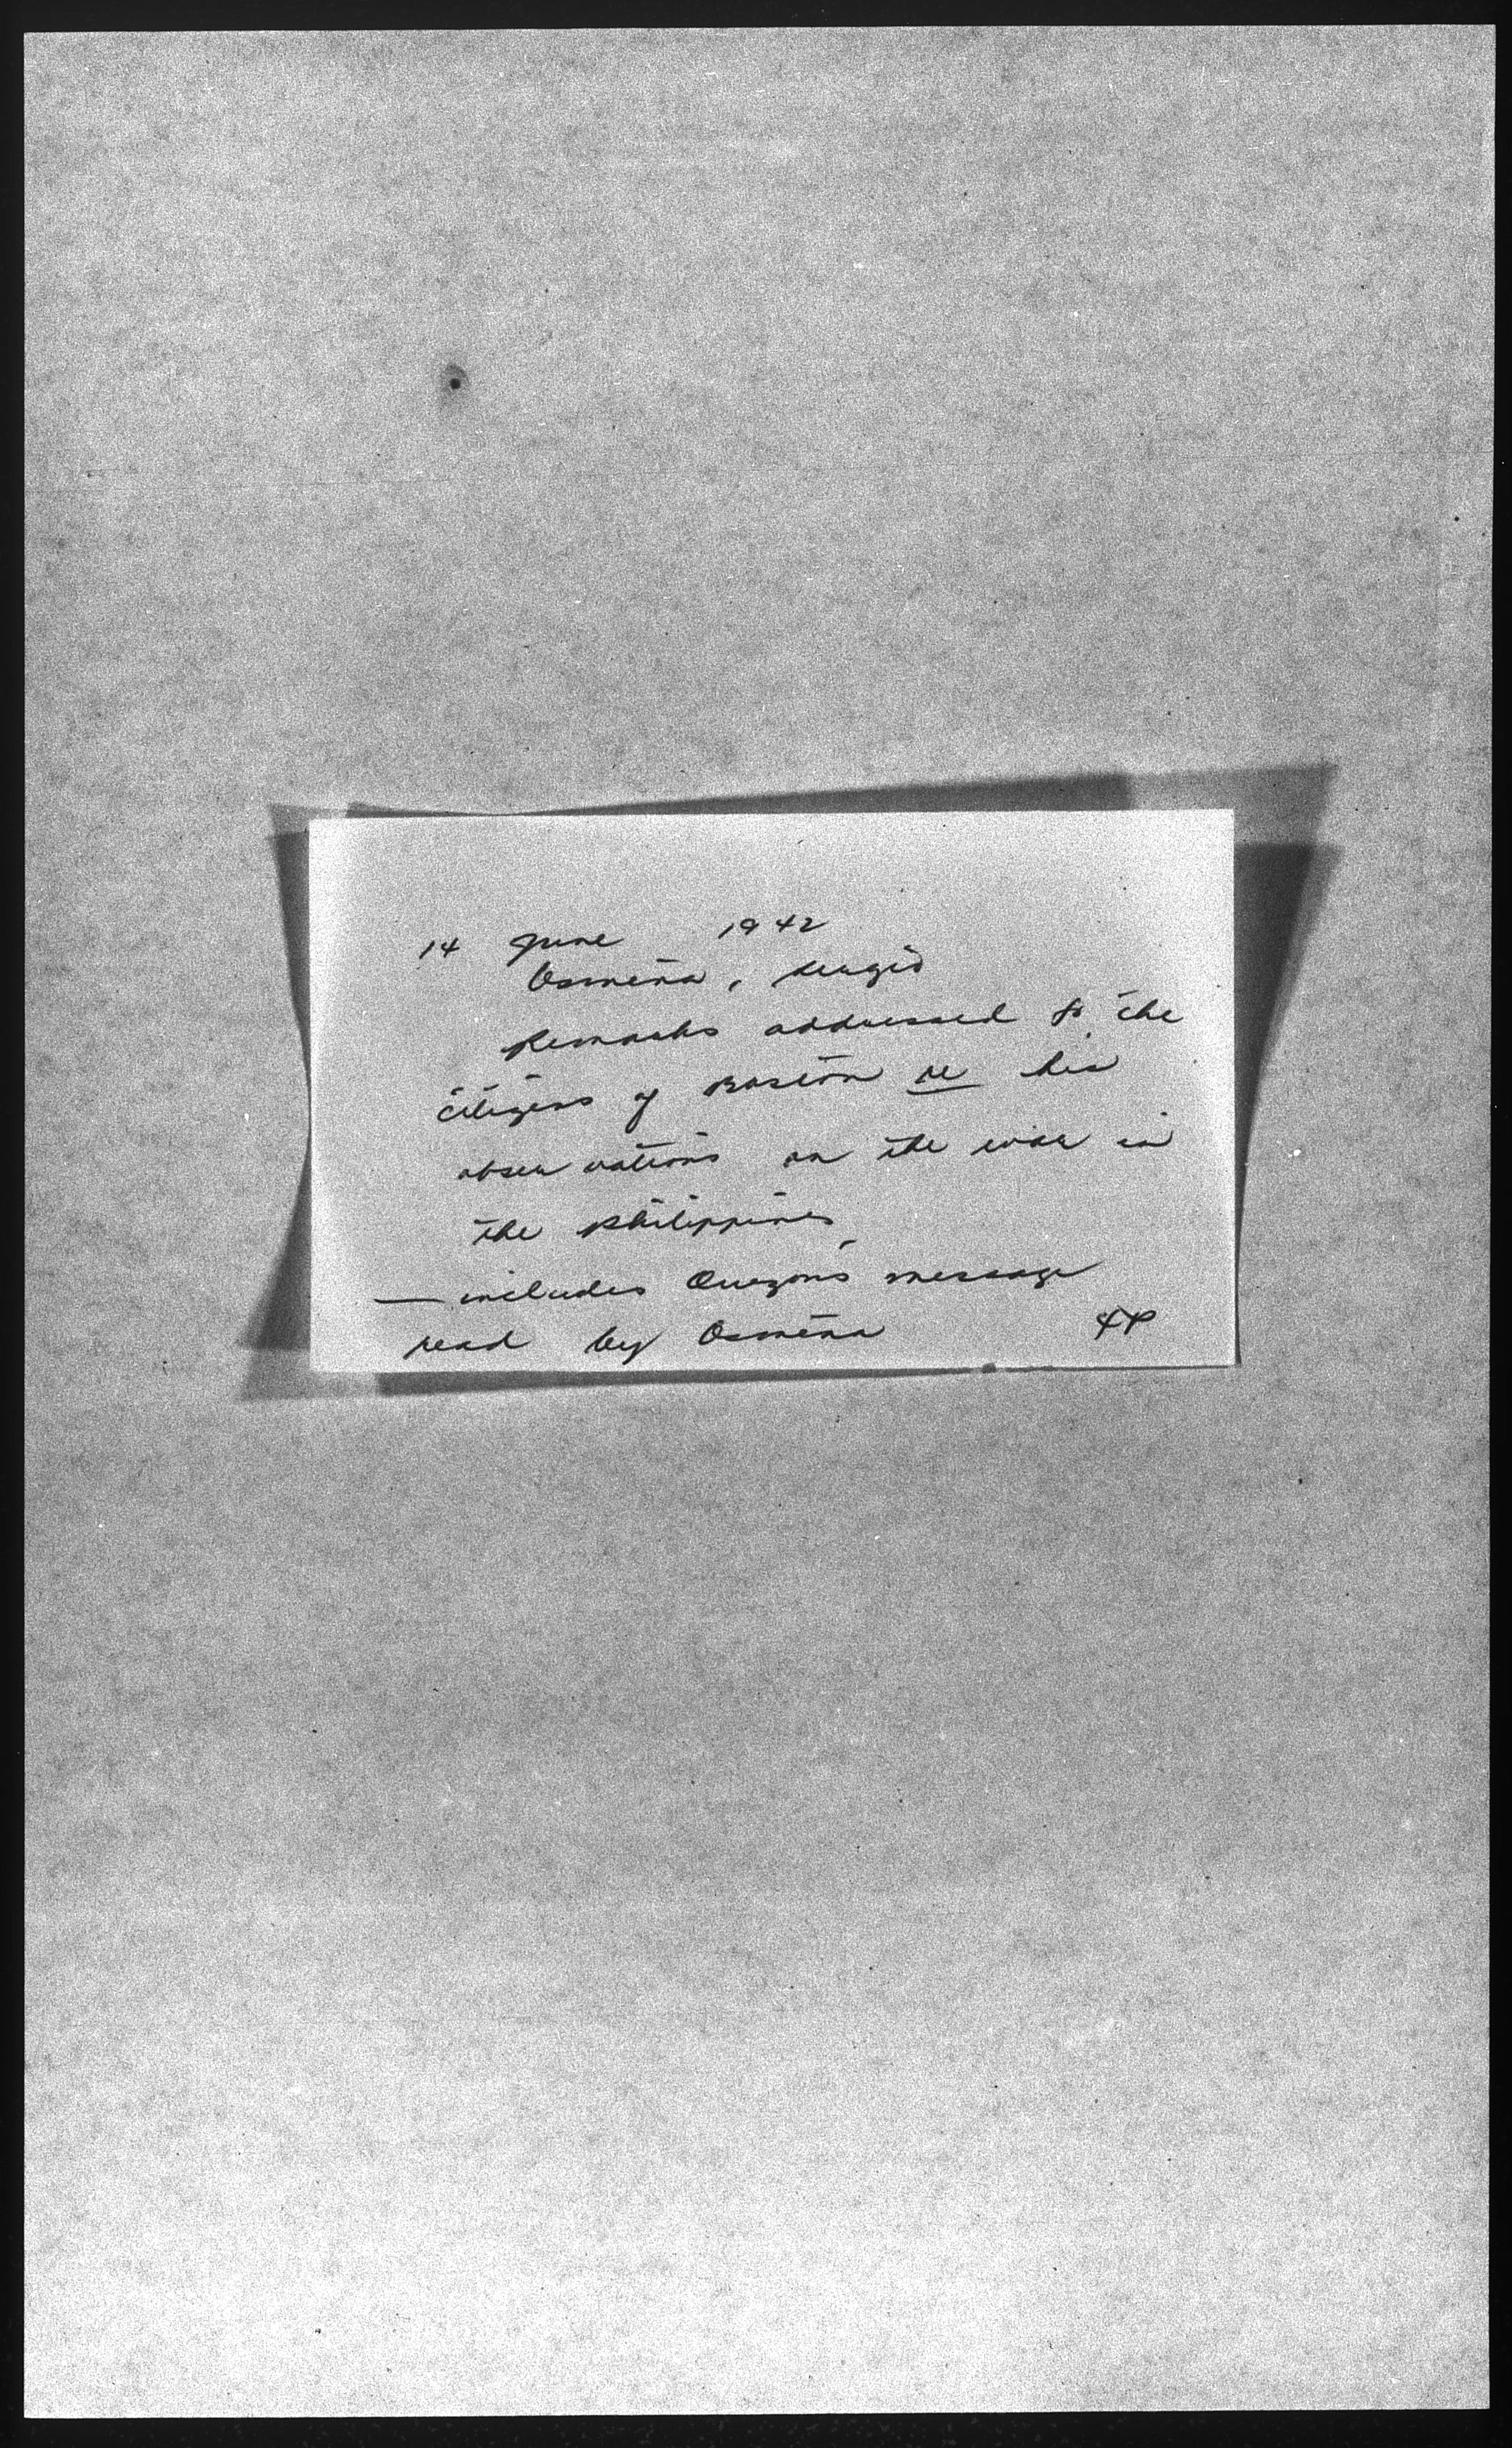 14 June 1942
Osmeña, Sergio
Remarks addressed to the
citizens of Boston re his
observations on the war in
the Philippines
— includes Quezon's message
read by Osmeña 4P